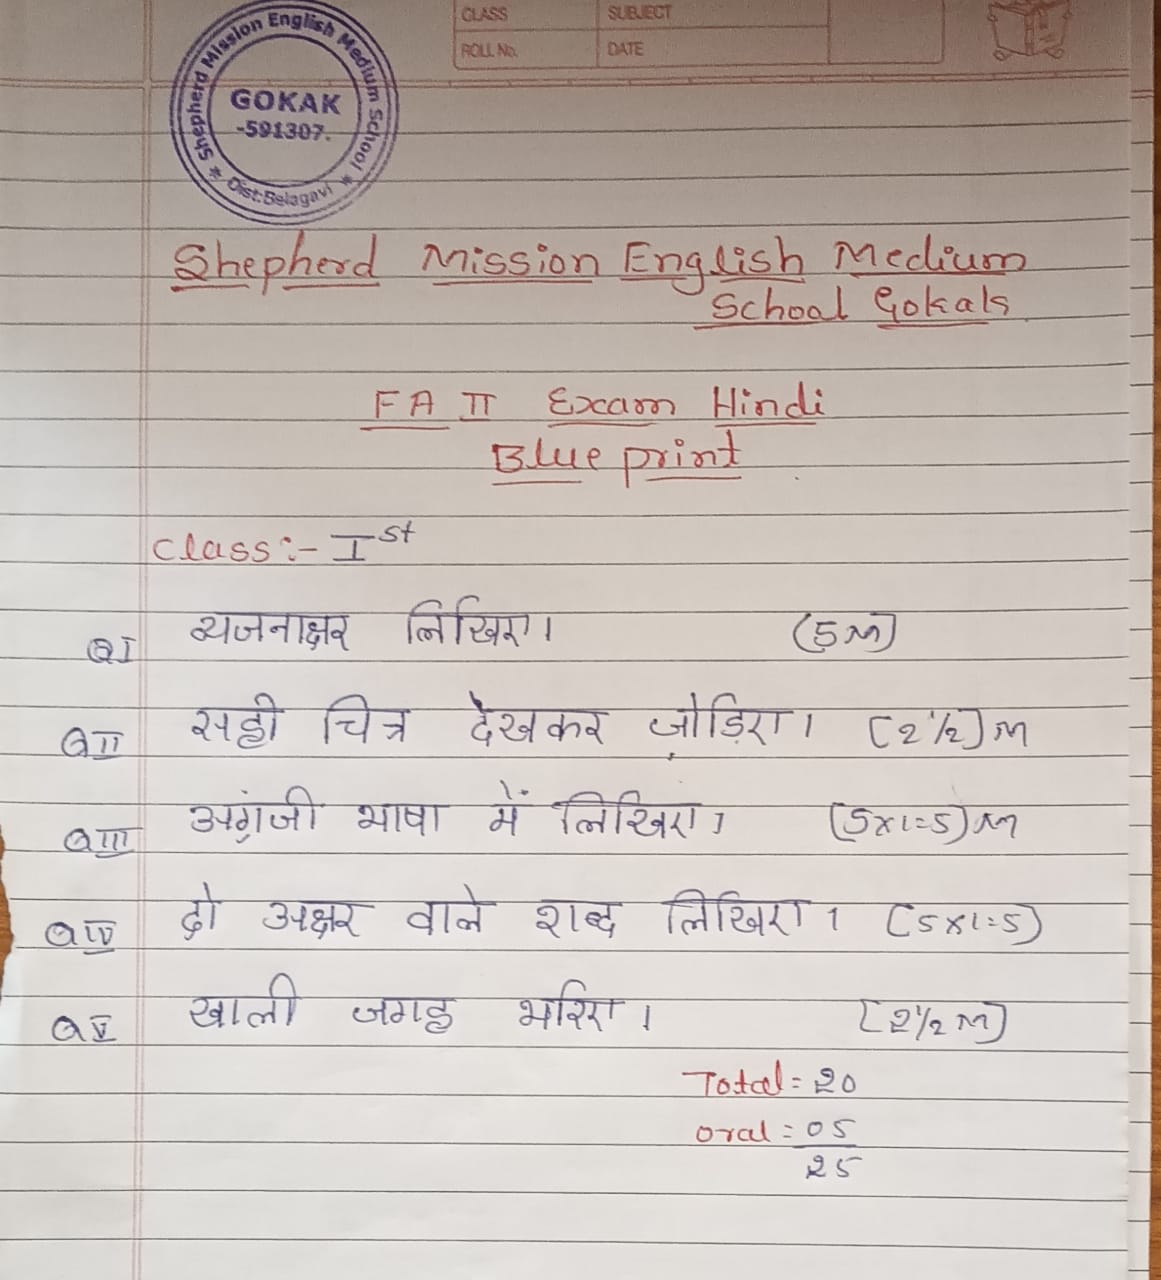 CLASS SUBJECT
ROLL No. DATE
Shepherd Mission English Medium School
GOKAK
-591307.
Dist:Belagavi
Shepherd Mission English Medium
School Gokak
FA II Exam Hindi
Blue print
Class:- Ist
QI व्यजनाक्षर लिखिए। (5M)
QII सही चित्र देखकर जोड़िए। (2 1/2) M
QIII अग्रंजी भाषा में लिखिए। (5x1=5) M
QIV दो अक्षर वाले शब्द लिखिए। (5x1=5)
QV खाली जगह भरिए। (2 1/2 M)
Total = 20
oral = 05
25